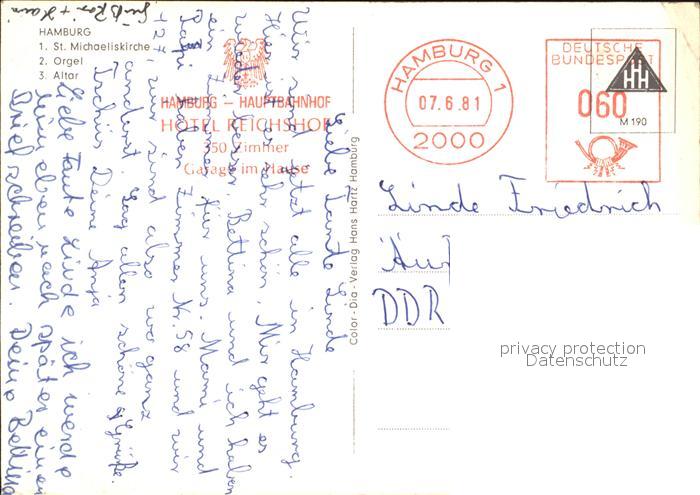 Grüß Ron + Karin
HAMBURG
1. St. Michaeliskirche
2. Orgel
3. Altar
HAMBURG – HAUPTBAHNHOF
HOTEL REICHSHOF
350 Zimmer
Garage im Hause
HAMBURG 1
07.6.81
2000
DEUTSCHE
BUNDESPOST
060
HH
M 190
Color - Dia - Verlag Hans Hartz Hamburg
Linde Friedrich
DDR
privacy protection
Datenschutz
Liebe Tante Linde
Wir sind jetzt alle in Hamburg.
Hier ist es sehr schön. Mir geht es
Bettina und ich haben
ein Zimmer für uns. Mami und
Papi haben Zimmer Nr. 58 und wir
127, wir sind also wo ganz
anders. Sag allen schöne Grüße.
Tschüs Deine Anja
Liebe Tante Linde ich werde
Dir eben nach später einen
Brief schreiben. Deine Bettina